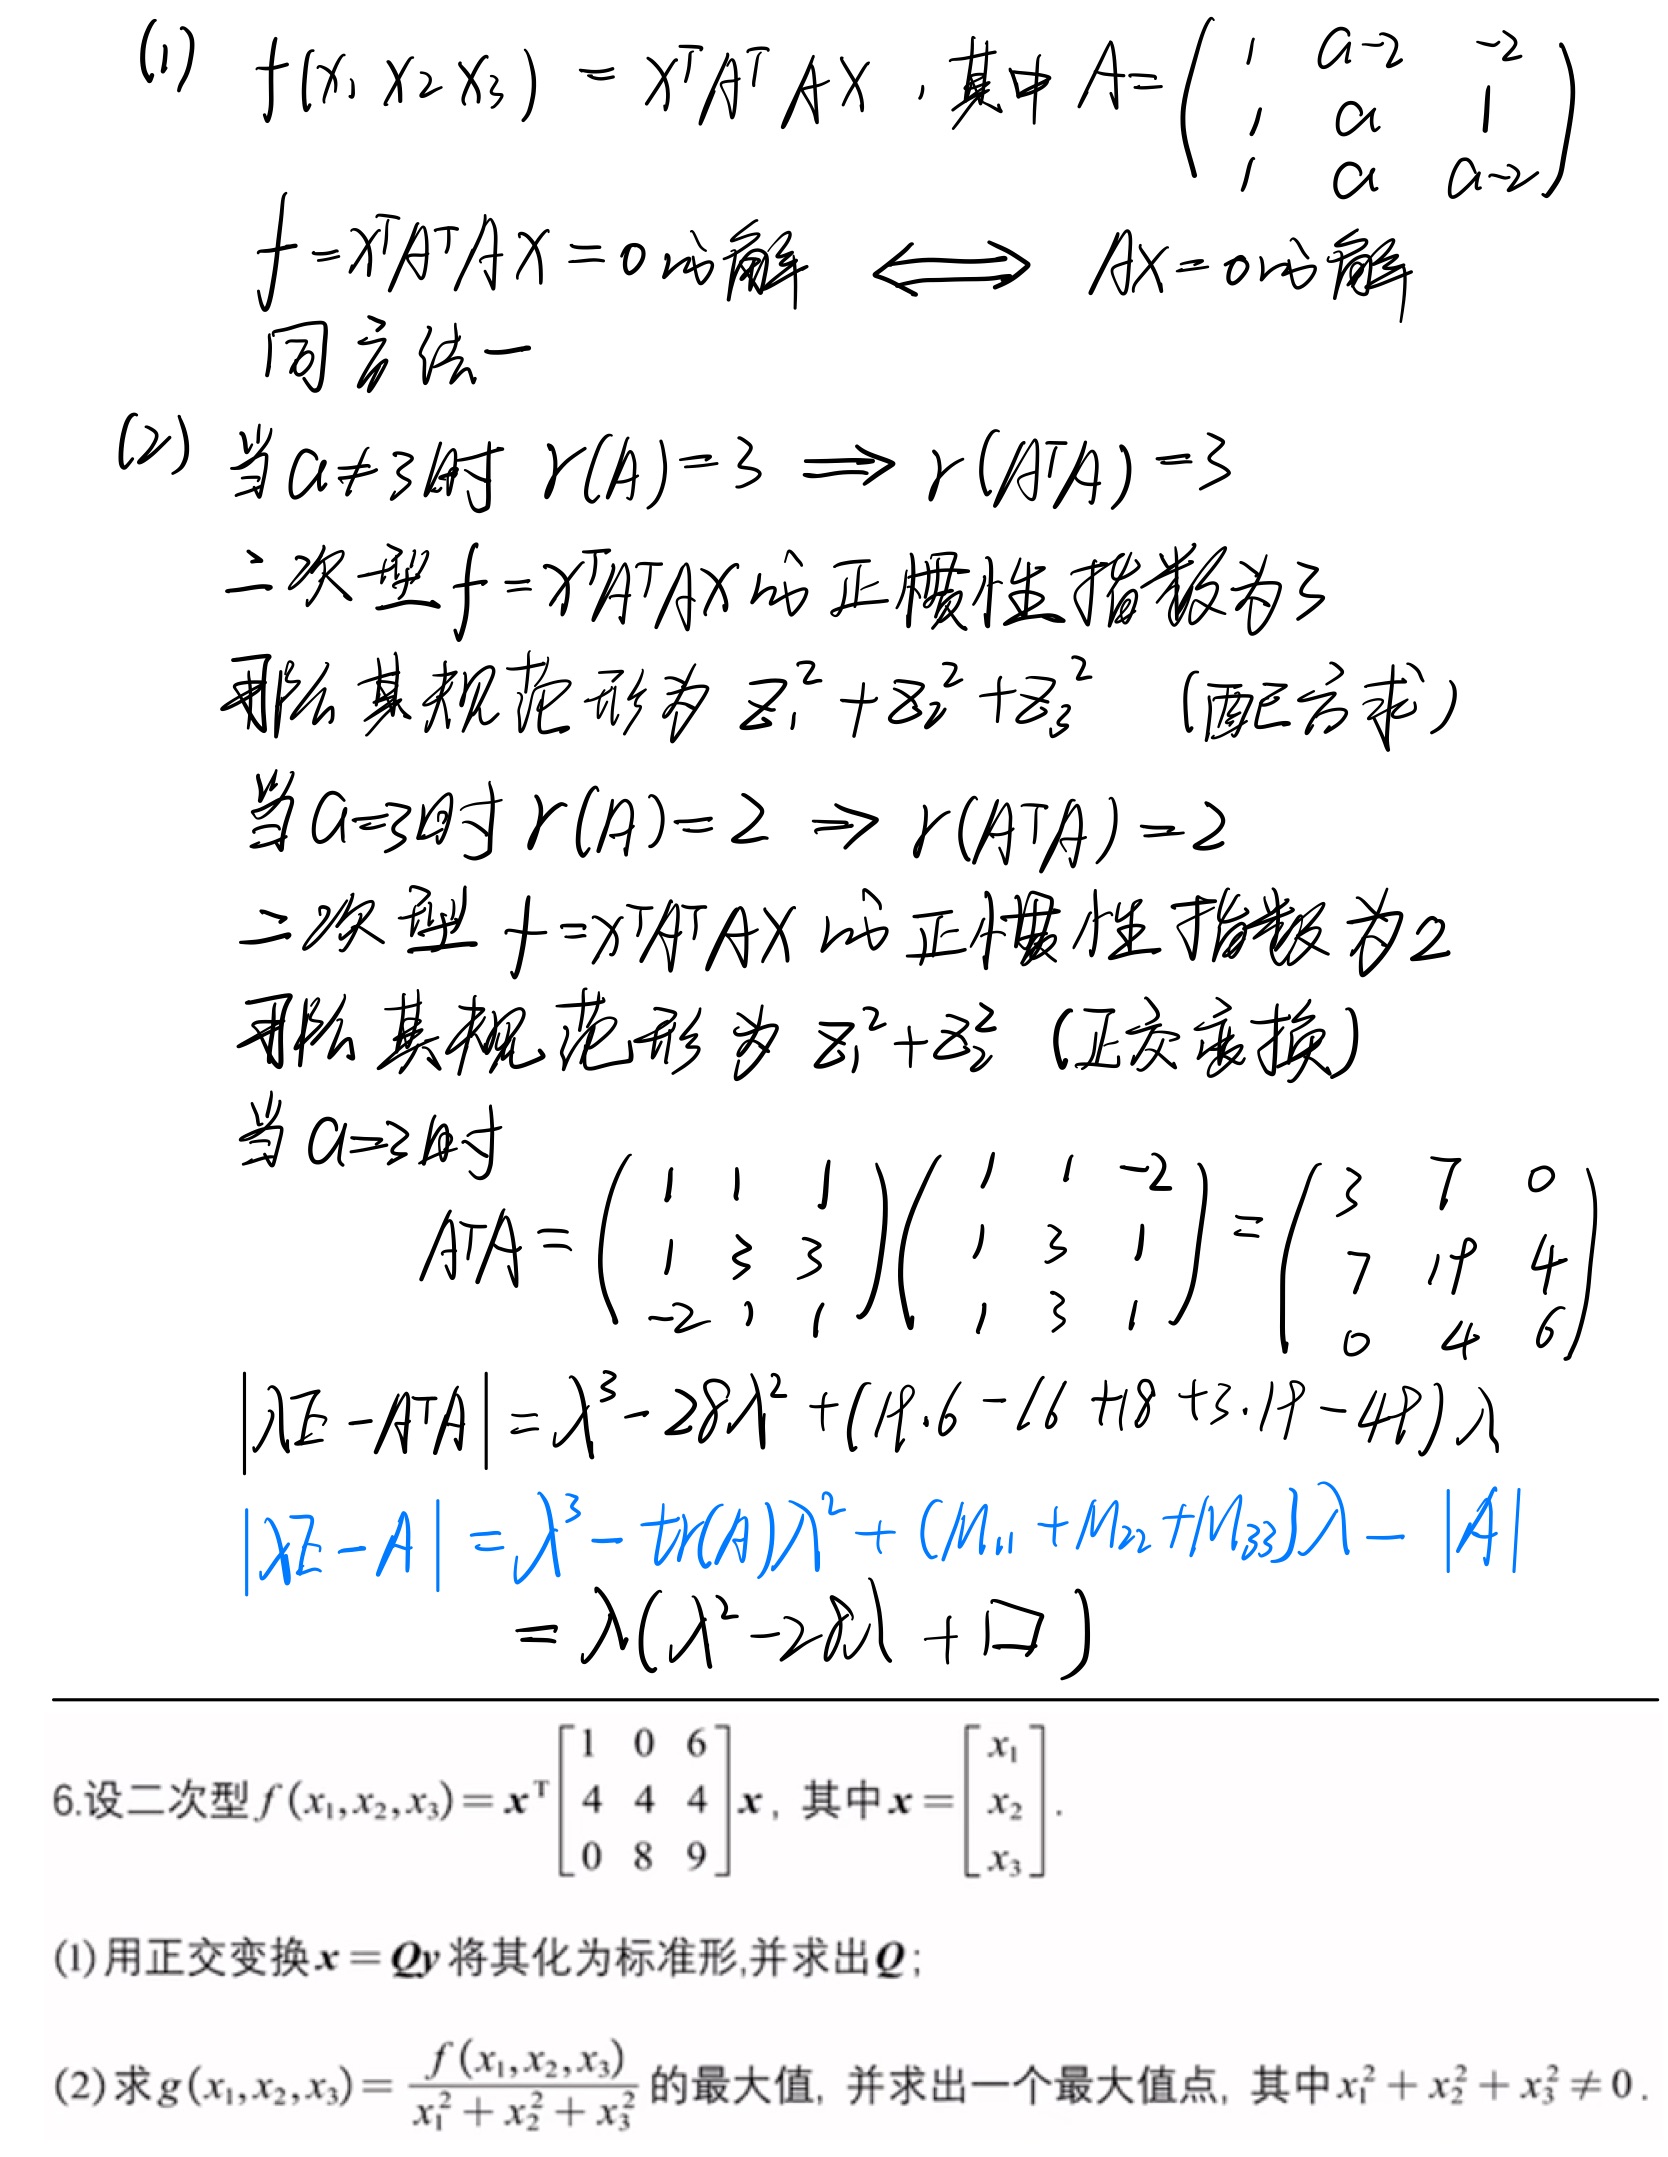 (1) f(x₁ x₂ x₃) = xᵀAᵀAx , 其中 A= ( 1 a-2 -2
1 a 1
1 a a-2 )
f=xᵀAᵀAx=0的解 ⟺ Ax=0的解
同方法一
(2) 当a≠3时 r(A)=3 ⟹ r(AᵀA)=3
二次型f=xᵀAᵀAx的正惯性指数为3
那么其规范形为 z₁²+z₂²+z₃² (配方求)
当a=3时 r(A)=2 ⇒ r(AᵀA)=2
二次型 f=xᵀAᵀAx 的正惯性指数为2
那么其规范形为 z₁²+z₂² (正交变换)
当a=3时
AᵀA = ( 1 1 1 ) ( 1 1 -2 ) = ( 3 7 0 )
( 1 3 3 ) ( 1 3 1 ) ( 7 19 4 )
( -2 1 1 ) ( 1 3 1 ) ( 0 4 6 )
|λE-AᵀA| = λ³-28λ²+(19·6-16+18+3·19-49)λ
|λE-A| = λ³-tr(A)λ²+(M₁₁+M₂₂+M₃₃)λ-|A|
= λ(λ²-28λ+□)
6.设二次型 f(x₁,x₂,x₃)=xᵀ [ 1 0 6
4 4 4
0 8 9 ] x, 其中 x = [ x₁
x₂
x₃ ].
(1)用正交变换 x=Qy 将其化为标准形,并求出Q;
(2)求 g(x₁,x₂,x₃)= f(x₁,x₂,x₃) / (x₁²+x₂²+x₃²) 的最大值, 并求出一个最大值点, 其中 x₁²+x₂²+x₃²≠0.